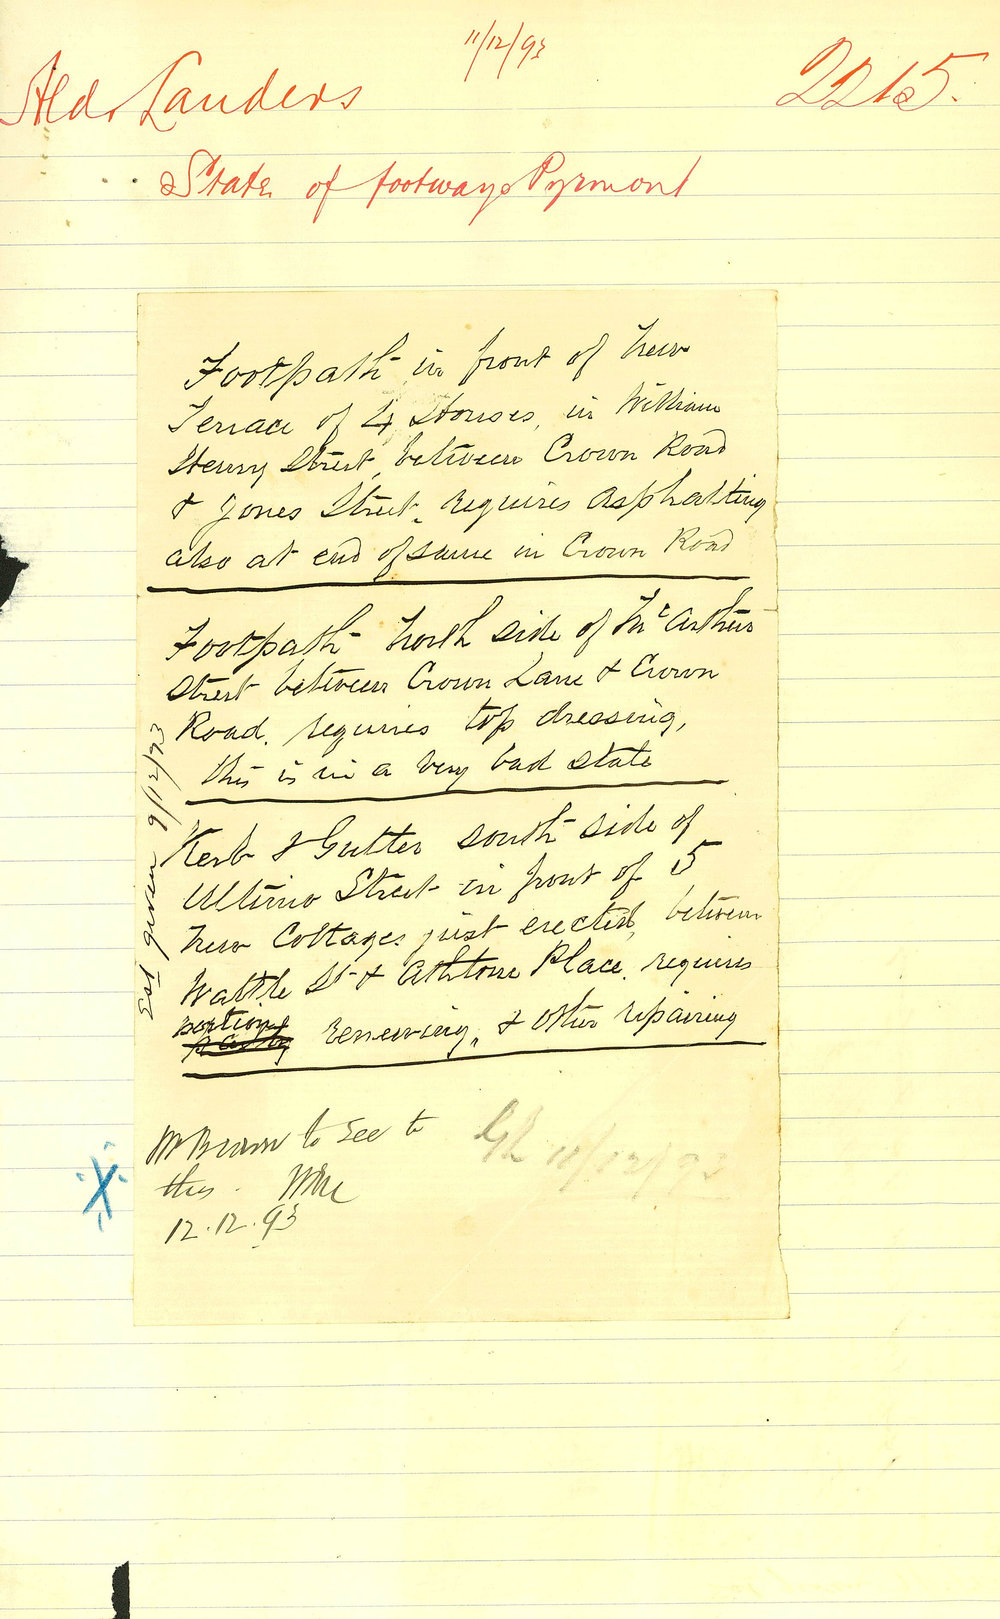 11/12/93
Ald. Landers
2215.
State of footways Pyrmont
Footpath in front of New
Terrace of 4 Houses, in William
Henry Street, between Crown Road
& Jones Street, requires asphalting
also at end of same in Crown Road
Footpath North side of McArthur
Street between Crown Lane & Crown
Road. requires top dressing,
this is in a very bad state
Kerb & Gutter south side of
Ultimo Street in front of 5
New Cottages just erected, between
Wattle St & Athlone Place. requires
renewing, & other repairing
Est given 9/12/93
Mr Brown to see to
this.
12.12.93
10/12/93